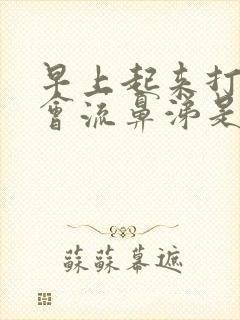 早上起来打
會流鼻涕是
蘇蘇幕遮